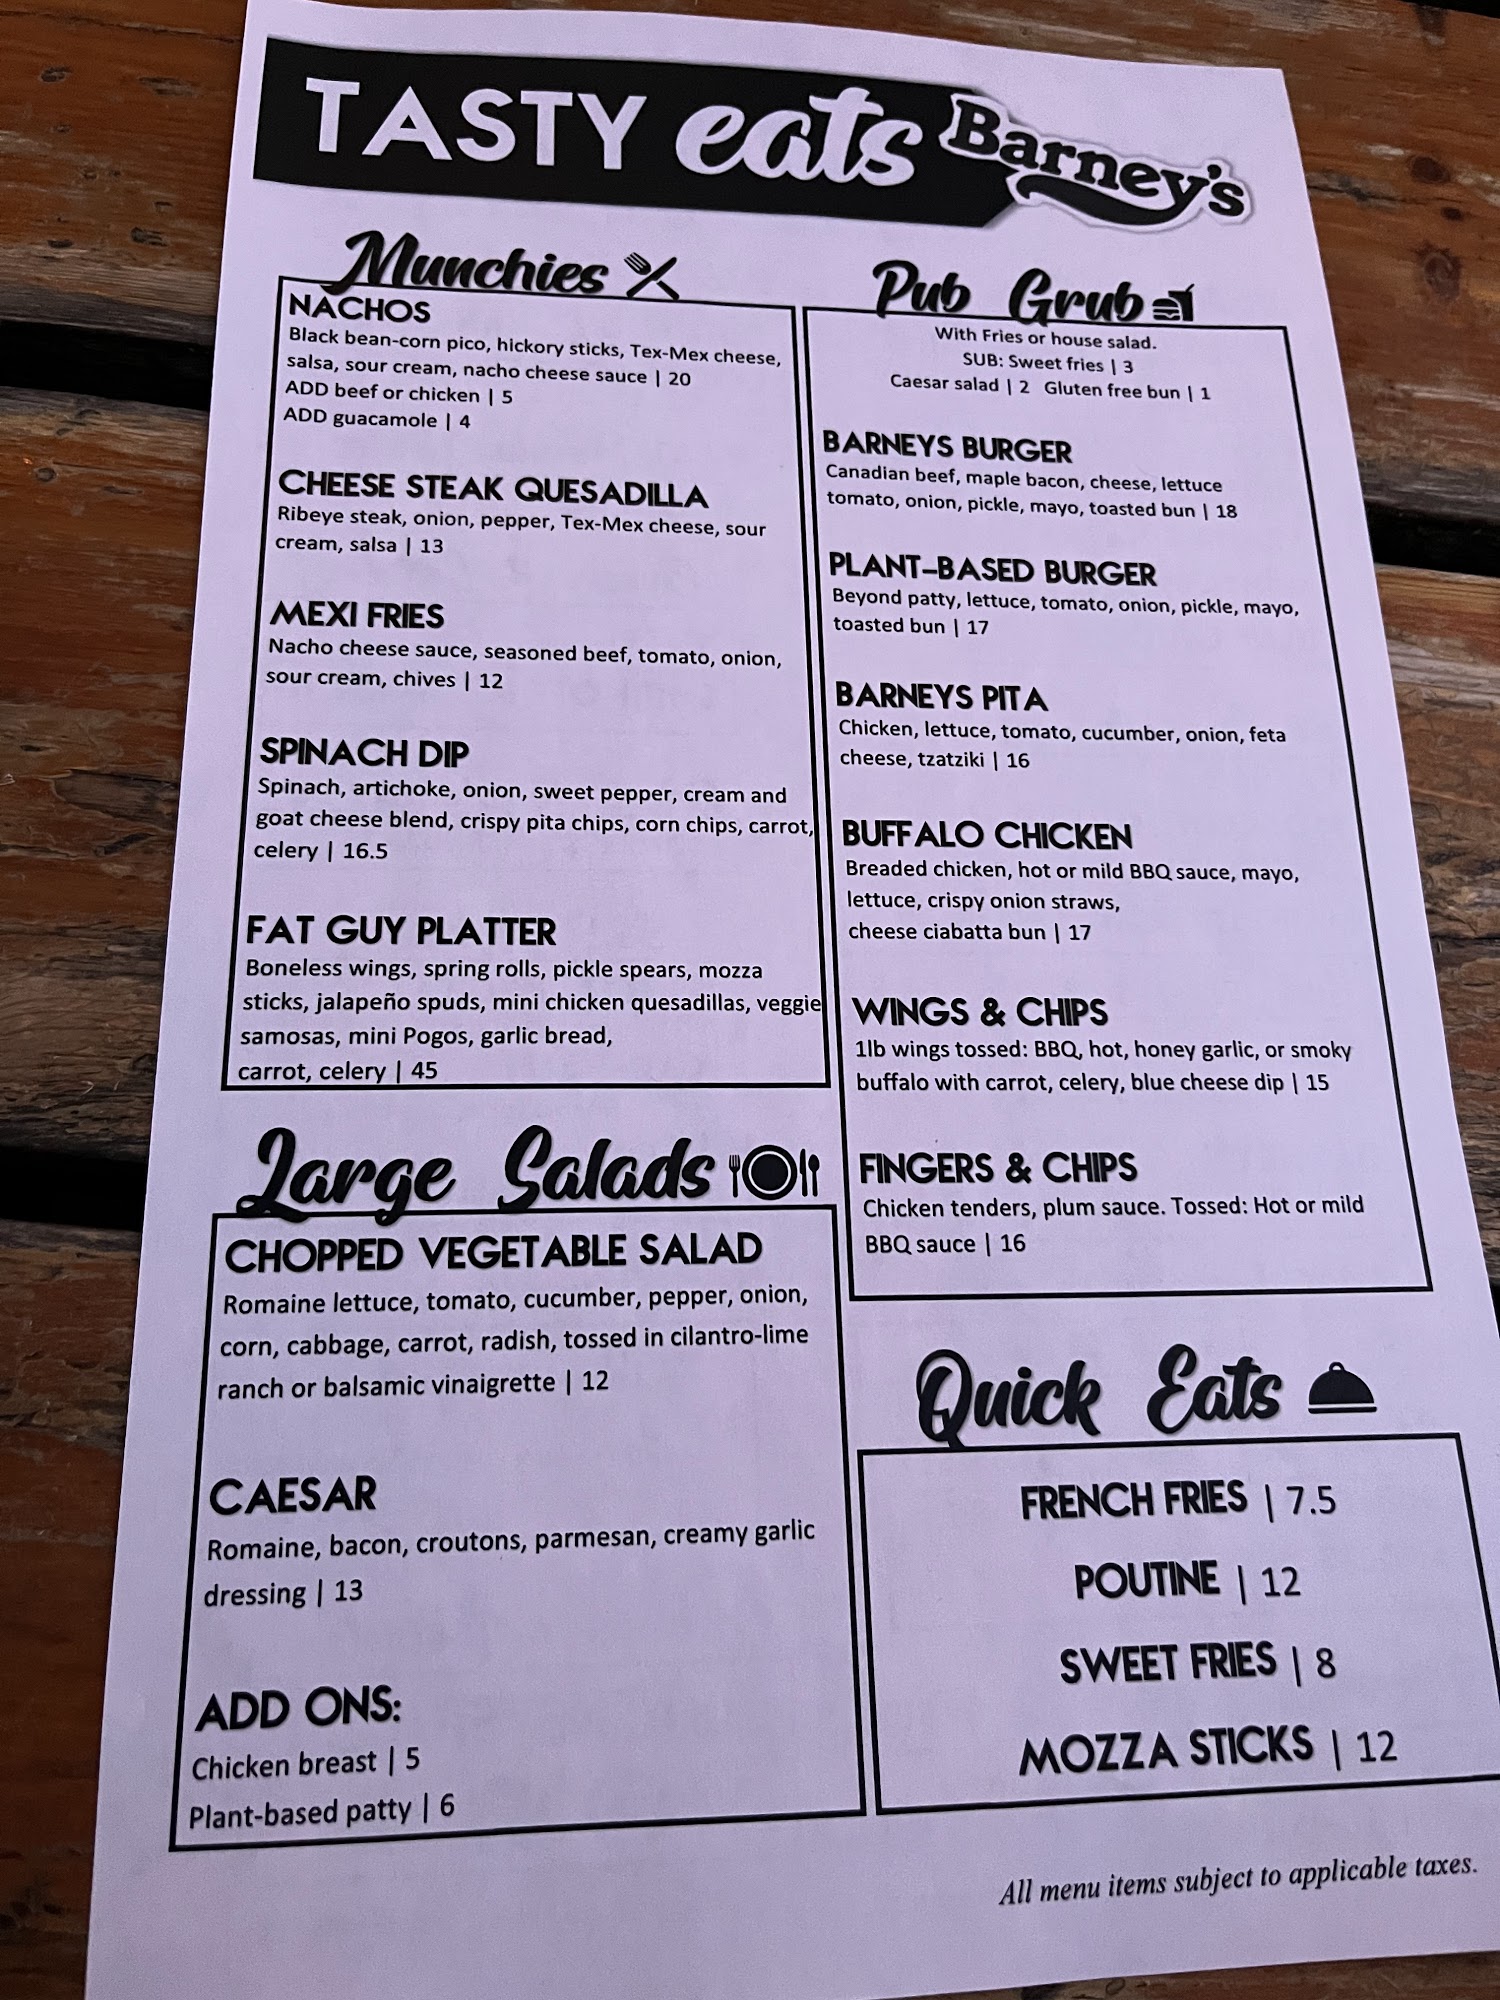 TASTY eats Barney's
Munchies
NACHOS
Black bean-corn pico, hickory sticks, Tex-Mex cheese,
salsa, sour cream, nacho cheese sauce | 20
ADD beef or chicken | 5
ADD guacamole | 4
CHEESE STEAK QUESADILLA
Ribeye steak, onion, pepper, Tex-Mex cheese, sour
cream, salsa | 13
MEXI FRIES
Nacho cheese sauce, seasoned beef, tomato, onion,
sour cream, chives | 12
SPINACH DIP
Spinach, artichoke, onion, sweet pepper, cream and
goat cheese blend, crispy pita chips, corn chips, carrot,
celery | 16.5
FAT GUY PLATTER
Boneless wings, spring rolls, pickle spears, mozza
sticks, jalapeño spuds, mini chicken quesadillas, veggie
samosas, mini Pogos, garlic bread,
carrot, celery | 45
Large Salads
CHOPPED VEGETABLE SALAD
Romaine lettuce, tomato, cucumber, pepper, onion,
corn, cabbage, carrot, radish, tossed in cilantro-lime
ranch or balsamic vinaigrette | 12
CAESAR
Romaine, bacon, croutons, parmesan, creamy garlic
dressing | 13
ADD ONS:
Chicken breast | 5
Plant-based patty | 6
Pub Grub
With Fries or house salad.
SUB: Sweet fries | 3
Caesar salad | 2 Gluten free bun | 1
BARNEYS BURGER
Canadian beef, maple bacon, cheese, lettuce
tomato, onion, pickle, mayo, toasted bun | 18
PLANT-BASED BURGER
Beyond patty, lettuce, tomato, onion, pickle, mayo,
toasted bun | 17
BARNEYS PITA
Chicken, lettuce, tomato, cucumber, onion, feta
cheese, tzatziki | 16
BUFFALO CHICKEN
Breaded chicken, hot or mild BBQ sauce, mayo,
lettuce, crispy onion straws,
cheese ciabatta bun | 17
WINGS & CHIPS
1lb wings tossed: BBQ, hot, honey garlic, or smoky
buffalo with carrot, celery, blue cheese dip | 15
FINGERS & CHIPS
Chicken tenders, plum sauce. Tossed: Hot or mild
BBQ sauce | 16
Quick Eats
FRENCH FRIES | 7.5
POUTINE | 12
SWEET FRIES | 8
MOZZA STICKS | 12
All menu items subject to applicable taxes.